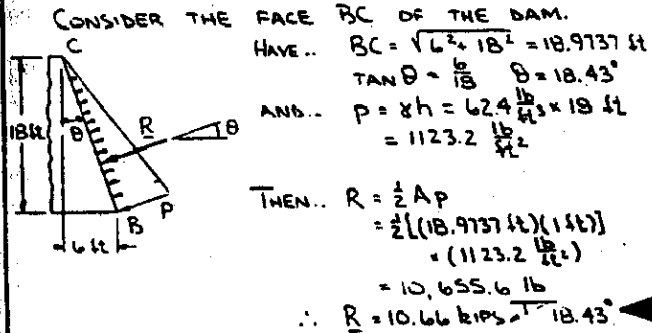 CONSIDER THE FACE BC OF THE DAM.
HAVE.. BC = √6²+ 18² = 18.9737 ft
TAN θ = 6/18 θ = 18.43°
AND.. p = γh = 62.4 lb/ft³ × 18 ft
= 1123.2 lb/ft²
THEN.. R = ½ Ap
= ½[(18.9737 ft)(1 ft)]
× (1123.2 lb/ft²)
= 10,655.6 lb
∴ R = 10.66 kips 18.43°
C
18 ft
θ
R
θ
P
B
6 ft